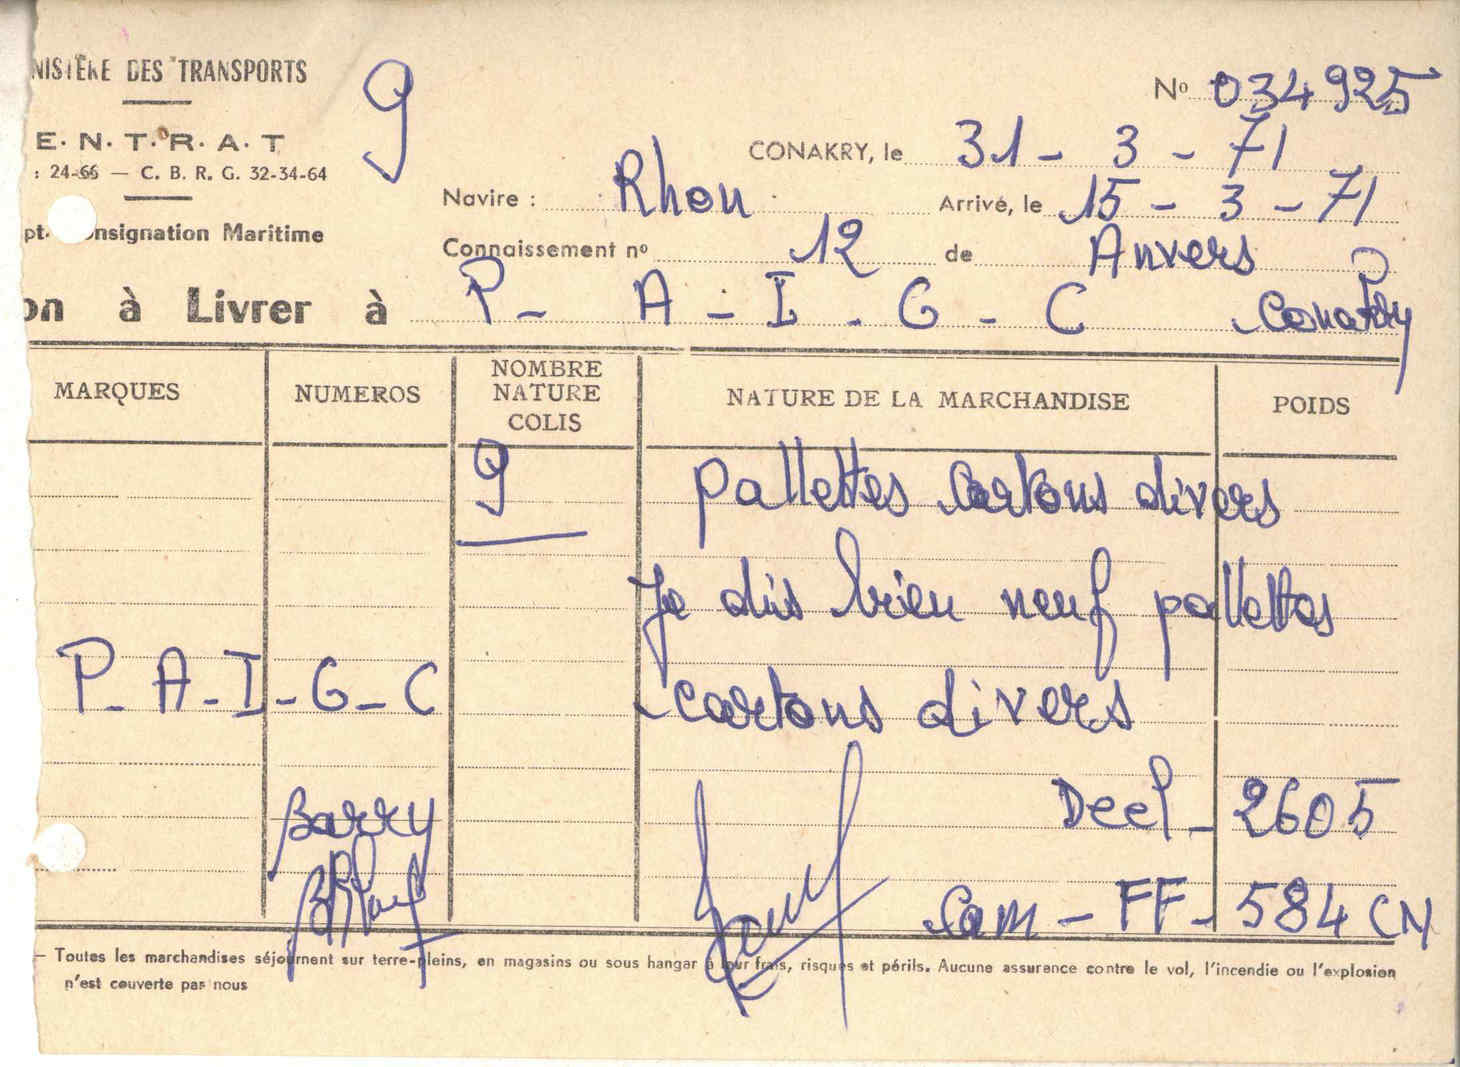 NISTÈRE DES TRANSPORTS
9
Nº 034925
E. N. T. R. A. T
CONAKRY, le 31 - 3 - 71
: 24-66 — C. B. R. G. 32-34-64
Navire : Rhon Arrivé, le 15 - 3 - 71
pt. onsignation Maritime
Connaissement nº 12 de Anvers
on à Livrer à P - A - I - G - C Conakry
MARQUES NUMEROS NOMBRE NATURE COLIS NATURE DE LA MARCHANDISE POIDS
9 pallettes cartons divers
Je dis bien neuf pallettes
P - A - I - G - C cartons divers
Barry Decl - 2605
Cam - FF - 584 CN
— Toutes les marchandises séjournent sur terre-pleins, en magasins ou sous hangar à leur frais, risques et périls. Aucune assurance contre le vol, l'incendie ou l'explosion
n'est couverte par nous